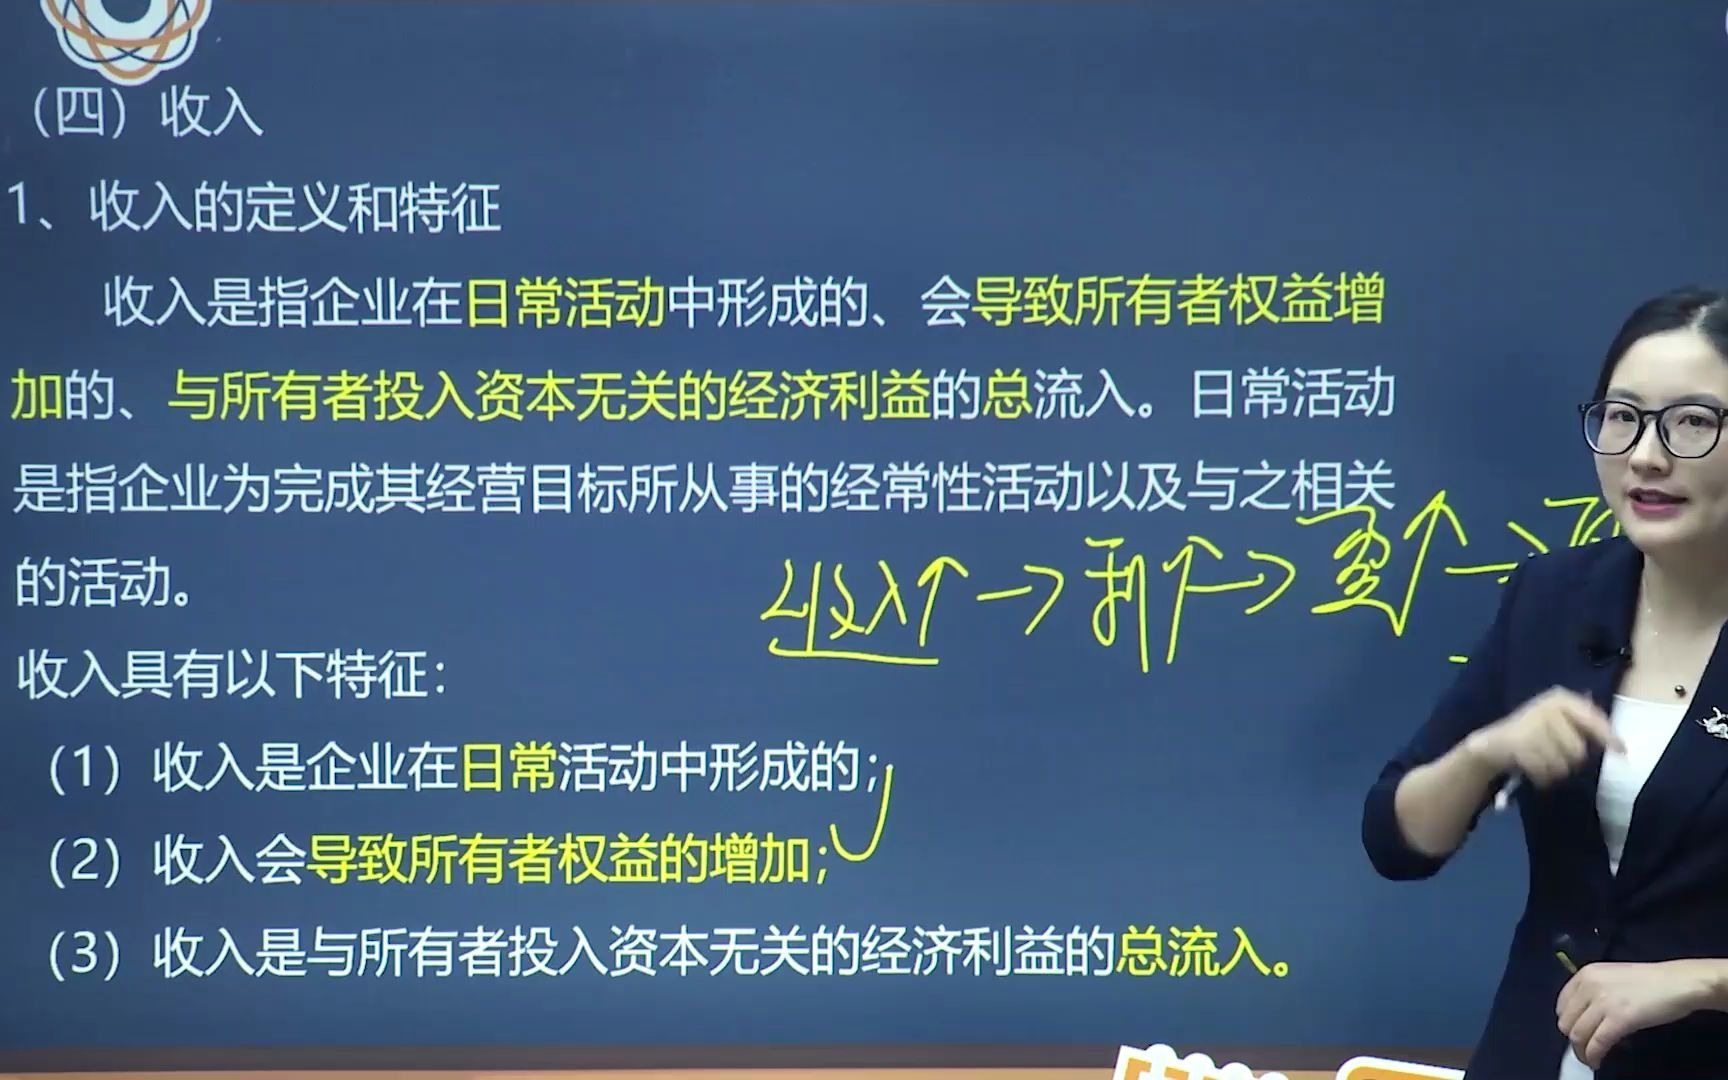 （四）收入
1、收入的定义和特征
收入是指企业在日常活动中形成的、会导致所有者权益增
加的、与所有者投入资本无关的经济利益的总流入。日常活动
是指企业为完成其经营目标所从事的经常性活动以及与之相关
的活动。
收入↑→利↑→盈↑→
收入具有以下特征：
（1）收入是企业在日常活动中形成的；
（2）收入会导致所有者权益的增加；
（3）收入是与所有者投入资本无关的经济利益的总流入。